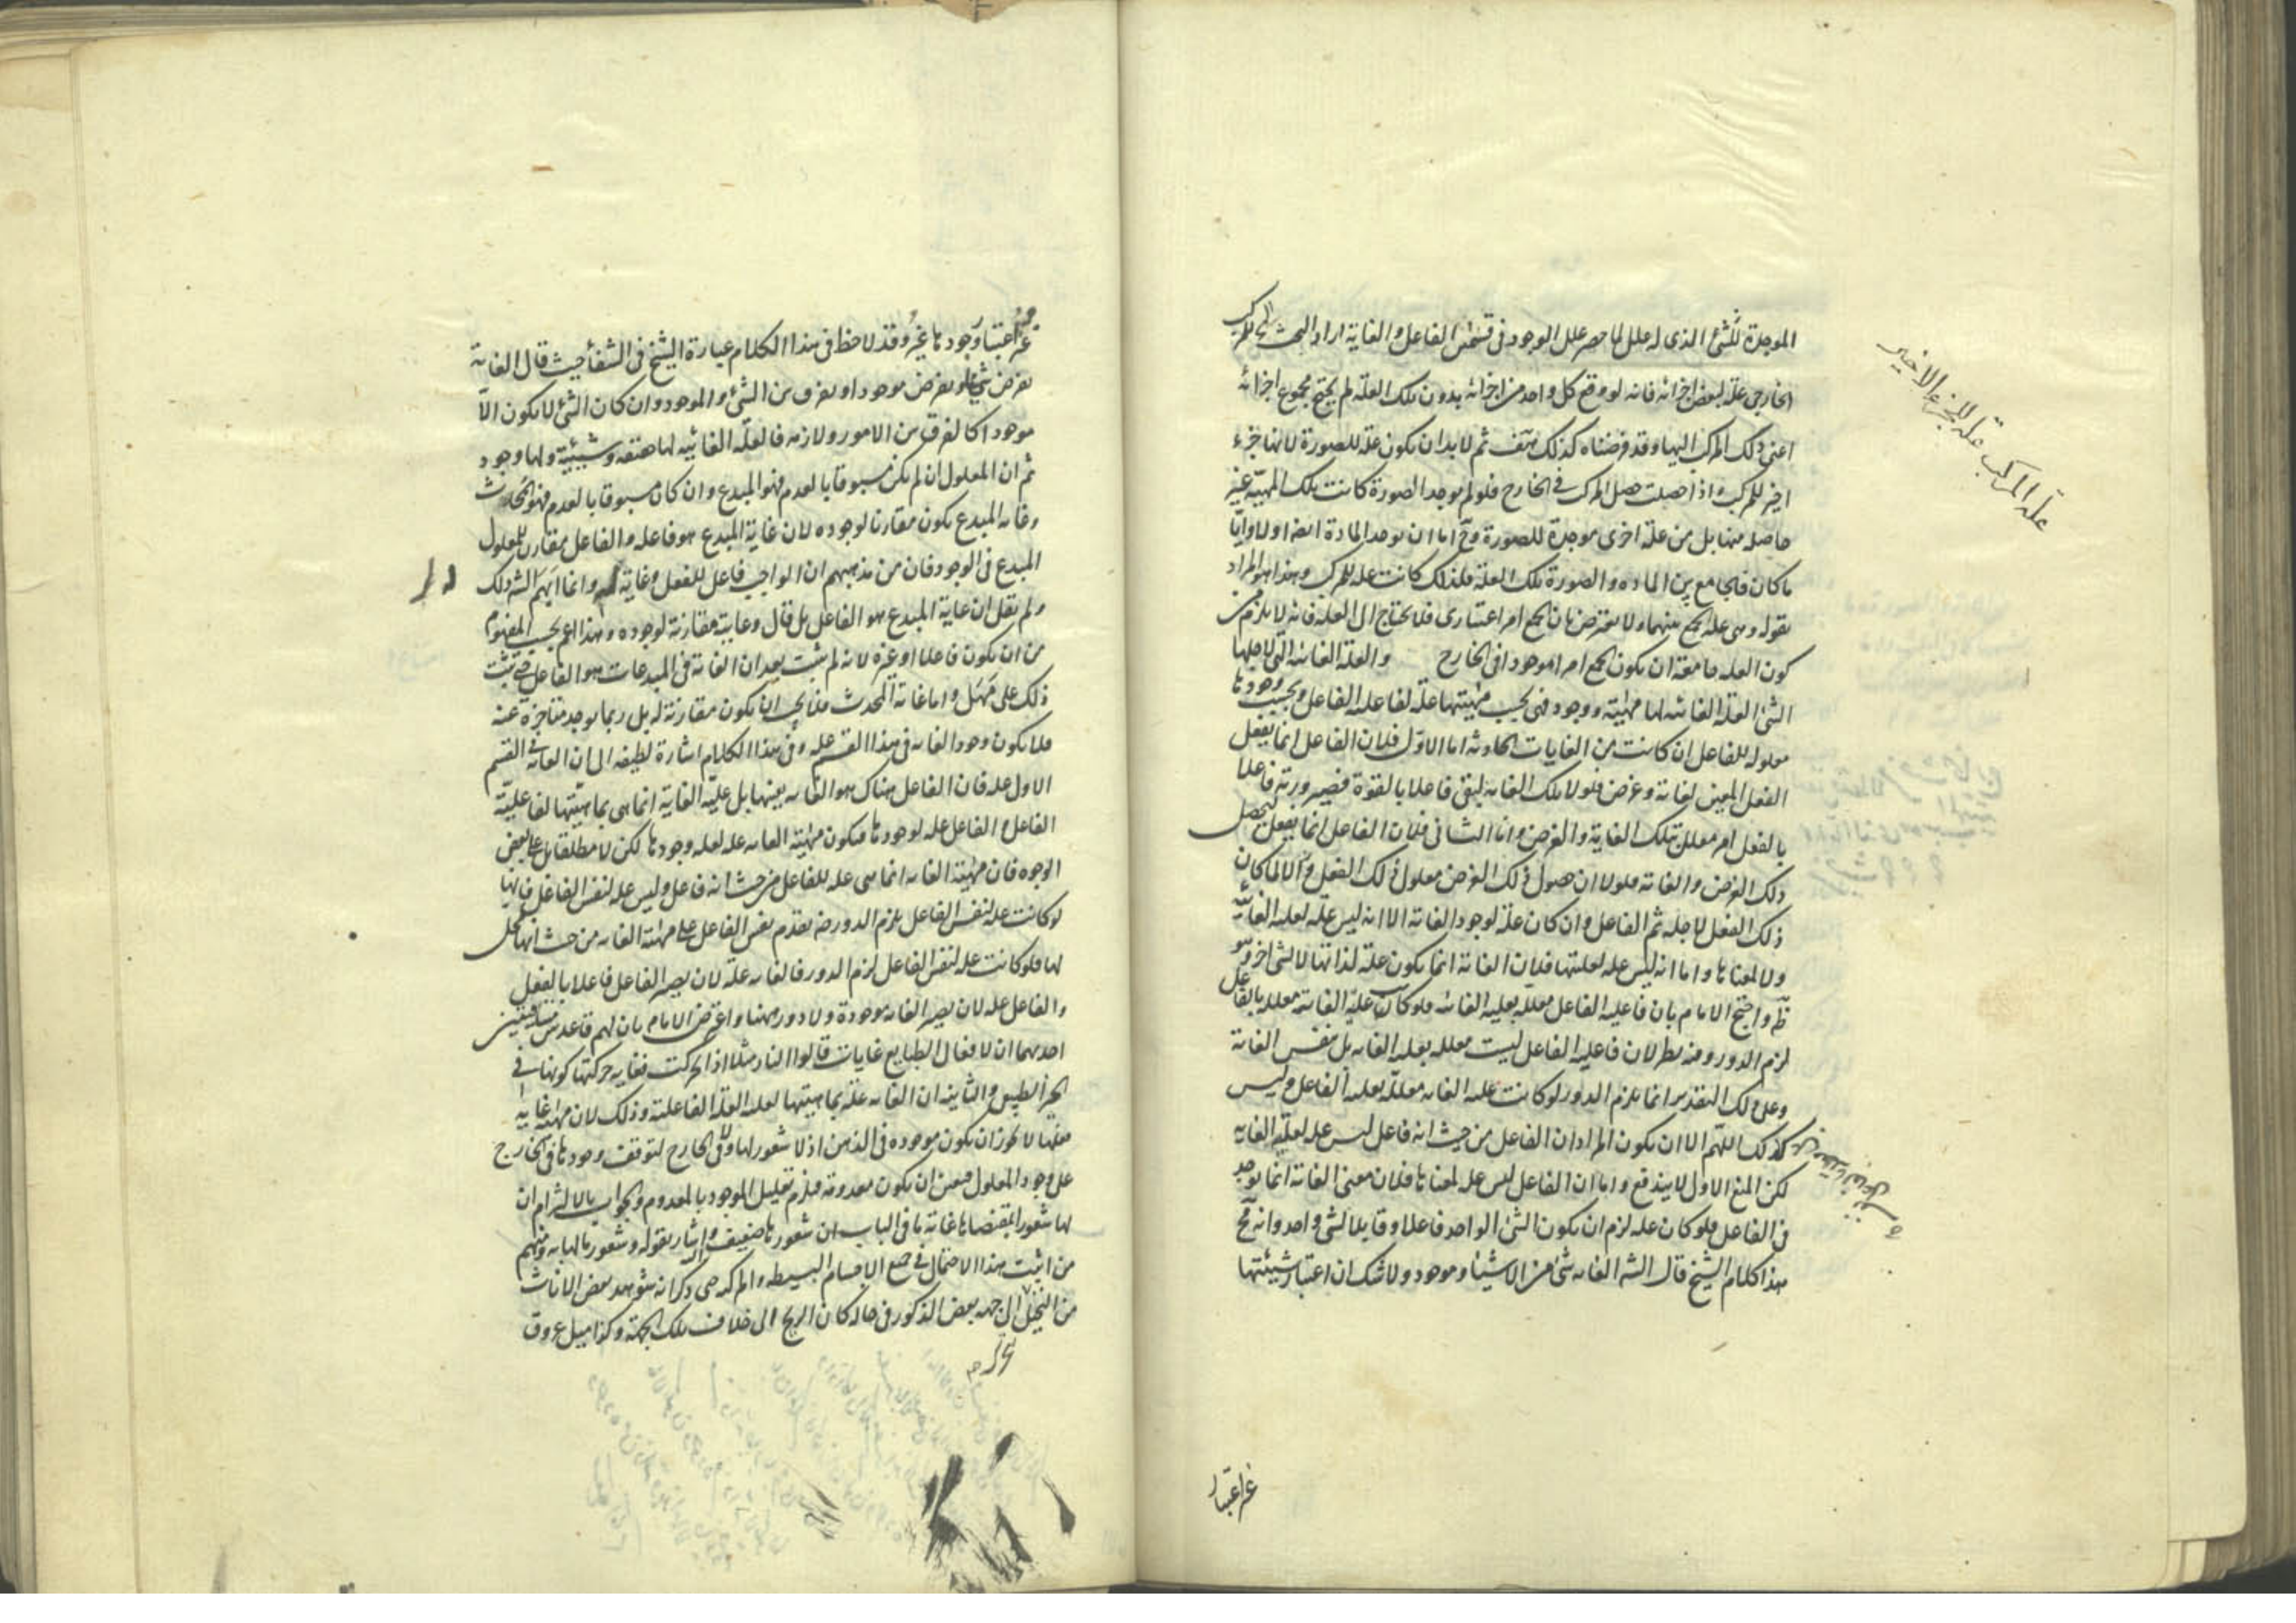 الموجدة للشئ الذى له علل لما حصر علل الوجود فى قسمين الفاعل والغاية اراد البحث الى المركب
الخارجى علة لبعض اجزائه فانه لو وقع كل واحد من اجزائه بدون تلك العلة لم يحتج مجموع اجزائه
اعنى ذلك المركب اليها وقد فرضناه كذلك هف ثم لا بد ان يكون علة للصورة لانها جزء
اخير للمركب واذا حصلت حصل المركب فى الخارج فلو لم يوجد الصورة كانت تلك المهية غير
حاصلة منها بل من علة اخرى موجدة للصورة وح اما ان يوجد المادة ايضا اولا وايا
ما كان فهى مع بين المادة والصورة تلك العلة فلذلك كانت علة للمركب وهذا هو المراد
بقوله وهى علة الجمع بينهما ولا يعترض بان الجمع امر اعتبارى فلا يحتاج الى العلة فانه لا يلزم من
كون العلة جامعة ان يكون الجمع امرا موجودا فى الخارج والعلة الغائية التى لاجلها
الشئ العلة الغائية لها مهية ووجود فهى بحسب مهيتها علة لفاعلية الفاعل وبحسب وجودها
معلولة للفاعل ان كانت من الغايات الحادثة اما الاول فلان الفاعل انما يفعل
الفعل المعين لغاية وغرض فلولا تلك الغاية لبقى فاعلا بالقوة فصيرورته فاعلا
بالفعل امر معلل بتلك الغاية والغرض واما الثانى فلان الفاعل انما يفعل ليحصل
ذلك الغرض والغاية فلولا ان حصول ذلك الغرض معلول ذلك الفعل والا لما كان
ذلك الفعل لاجله ثم الفاعل وان كان علة لوجود الغاية الا انه ليس علة لعلية الغائية
ولا لمعناها واما انه ليس علة لعليتها فلان الغاية انما يكون علة لذاتها لا لشئ اخر وهو
ظ واحتج الامام بان فاعلية الفاعل معللة بعلية الغاية فلو كانت علية الغاية معللة بالفاعل
لزم الدور وفيه نظر لان فاعلية الفاعل ليست معللة بعلية الغاية بل بنفس الغاية
وعلى ذلك التقدير انما يلزم الدور لو كانت علية الغاية معللة بعلية الفاعل وليس
كذلك اللهم الا ان يكون المراد ان الفاعل من حيث انه فاعل ليس علة لعلية الغاية
لكن المنع الاول لا يندفع واما ان الفاعل ليس علة لمعناها فلان معنى الغاية انما يوجد
فى الفاعل فلو كان علة لزم ان يكون الشئ الواحد فاعلا وقابلا لشئ واحد وانه مح
هذا كلام الشيخ قال الش الغاية شئ من الاشياء وموجود ولا شك ان اعتبار شيئيتها
علة المركب علة للجزء الاخير
غير اعتبار
غير اعتبار وجودها غيره وقد لاحظ فى هذا الكلام عبارة الشيخ فى الشفا حيث قال الغاية
يفرض شيئا ويفرض موجودا وفرق بين الشئ والموجود وان كان الشئ لا يكون الا
موجودا كالفرق بين الامور ولازمه فالعلة الغائية لها حقيقة وشيئية ولها وجود
ثم ان المعلول ان لم يكن مسبوقا بالعدم فهو المبدع وان كان مسبوقا بالعدم فهو المحدث
وغاية المبدع يكون مقارنا لوجوده لان غاية المبدع هو فاعله والفاعل مقارن للمعلول
المبدع فى الوجود فان من مذهبهم ان الواجب فاعل للفعل وغاية له وانما ابهم الش ذلك
ولم يقل ان غاية المبدع هو الفاعل بل قال وغايته مقارنة لوجوده وهذا اعم بحسب المفهوم
من ان يكون فاعلا او غيره لانه لم يثبت بعد ان الغاية فى المبدعات هو الفاعل حتى يثبت
ذلك على مهل واما غاية المحدث فلا يجب ان يكون مقارنة له بل ربما يوجد متاخرة عنه
فلا يكون وجود الغاية فى هذا القسم علة وفى هذا الكلام اشارة لطيفة الى ان الغاية فى القسم
الاول علة فان الفاعل هناك هو الغاية بعينها بل علية الغاية انما هى بماهيتها لفاعلية
الفاعل والفاعل علة لوجودها فيكون مهية الغاية علة لعلة وجودها لكن لا مطلقا بل على بعض
الوجوه فان مهية الغاية انما هى علة للفاعل من حيث انه فاعل وليس علة لنفس الفاعل فانها
لو كانت علة لنفس الفاعل يلزم الدور ضرورة تقدم نفس الفاعل على مهية الغاية من حيث انها محل
لها فلو كانت علة لنفس الفاعل لزم الدور فالغاية علة لان يصير الفاعل فاعلا بالفعل
والفاعل علة لان يصير الغاية موجودة ولا دور ههنا واعترض الامام بان لهم قاعدتين متنافيتين
احديهما ان لافعال الطبايع غايات قالوا النار مثلا اذا تحركت فغاية حركتها كونها فى
الحيز الطبيعى والثانية ان الغاية علة بماهيتها لعلية العلة الفاعلية وذلك لان مهية غاية
فعلها لا يجوز ان يكون موجودة فى الذهن اذ لا شعور لها ولا فى الخارج لتوقف وجودها فى الخارج
على وجود المعلول فيتعين ان يكون معدومة فيلزم تعليل الموجود بالمعدوم والجواب بالالتزام ان
لها شعورا بمقتضاها غاية ما فى الباب ان شعورها ضعيف واشار بقوله وشعور ما لها به ومنهم
من اثبت هذا الاحتمال فى جميع الاقسام البسيطة والمركبة حتى ذكر انه شوهد بعض الاناث
من النخل الى جهة بعض الذكور فى حالة كان الريح الى خلاف تلك الجهة وكذا ميل عروق